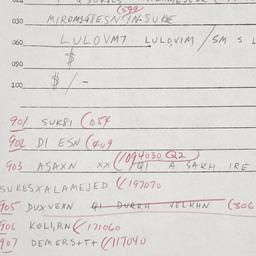 (592
030 MIROMSATESN IN SUKE
060 LULOVM7 LULOVIM / SM S L
$
090
$ / -
100
901 SUKSI (054
902 DI ESN (409
(/094030 Q2)
903 ASAXN XX / QI A SAKH IRE
SUKESXALAMEJED (/197070
905 DUXVEXN QI DURKH VELKHN (306
906 KOLI,RN (/171060
907 DEMERS+T+ (/117040